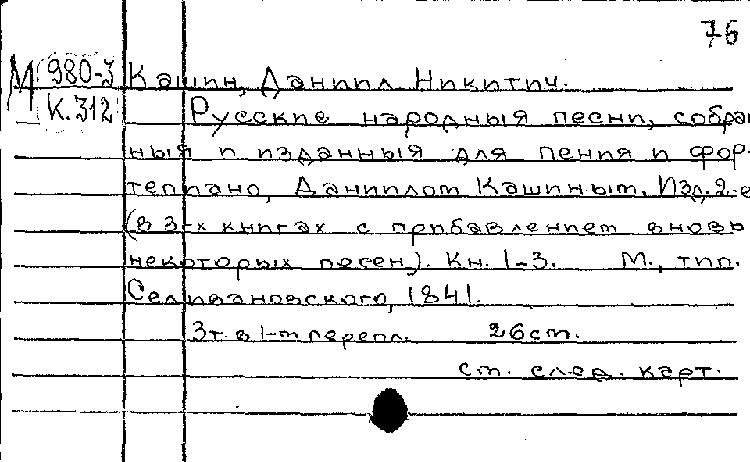 76
М 980-3 Кашин, Даниил Никитич.
К.312 Русские народныя песни, собран
ныя и изданныя для пения и фор-
тепиано, Даниилом Кашиным. Изд. 2-е
(в 3-х книгах с прибавлением вновь
некоторых песен). Кн. 1-3. М., тип.
Селивановского, 1841.
3т. в 1-м перепл. 26 см.
см. след. карт.